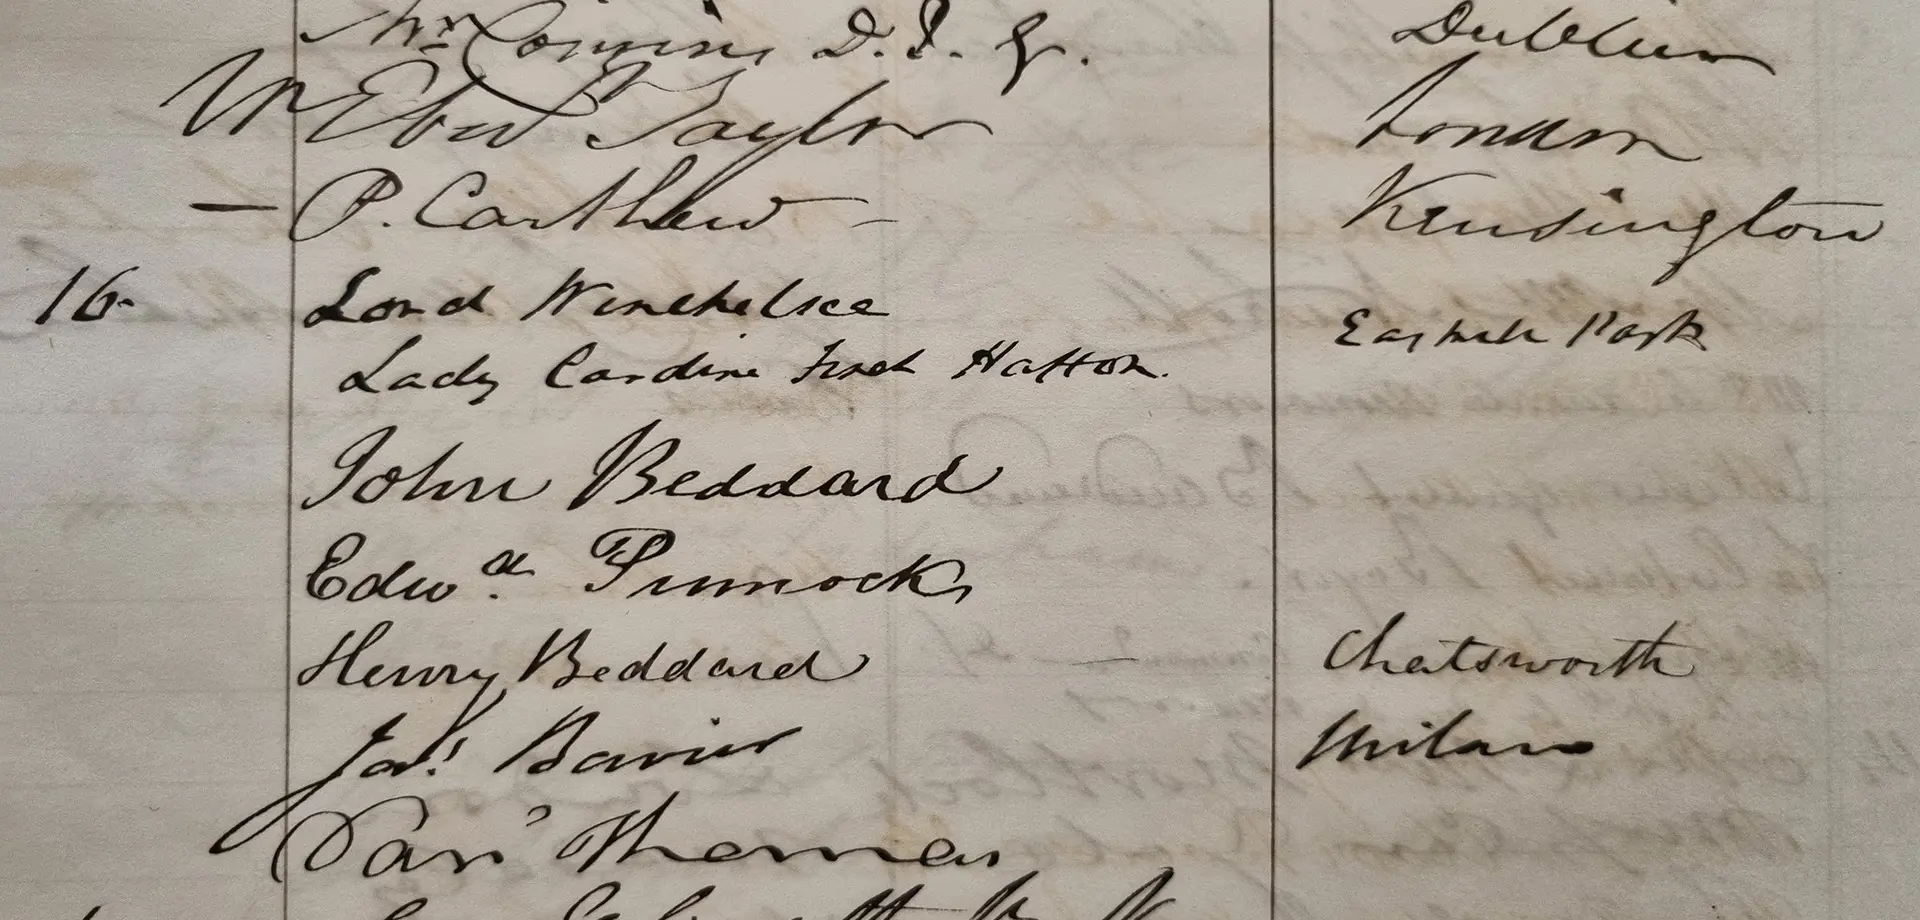 Dublin
Taylor London
— P. Carthew — Kensington
16 Lord Winchelsea
Eastwell Park
Lady Caroline Finch Hatton.
John Beddard
Edwd. Pinnock
Henry Beddard Chatsworth
Jas. Milan
Thomas